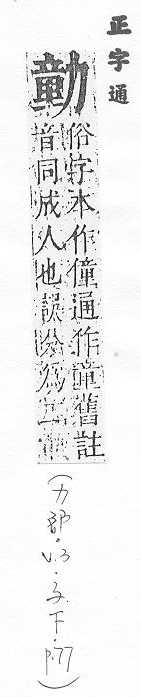 正字通
勭
俗字本作僮通作童舊註
音同成人也誤分爲二
(力部·v.3·子下·p.77)